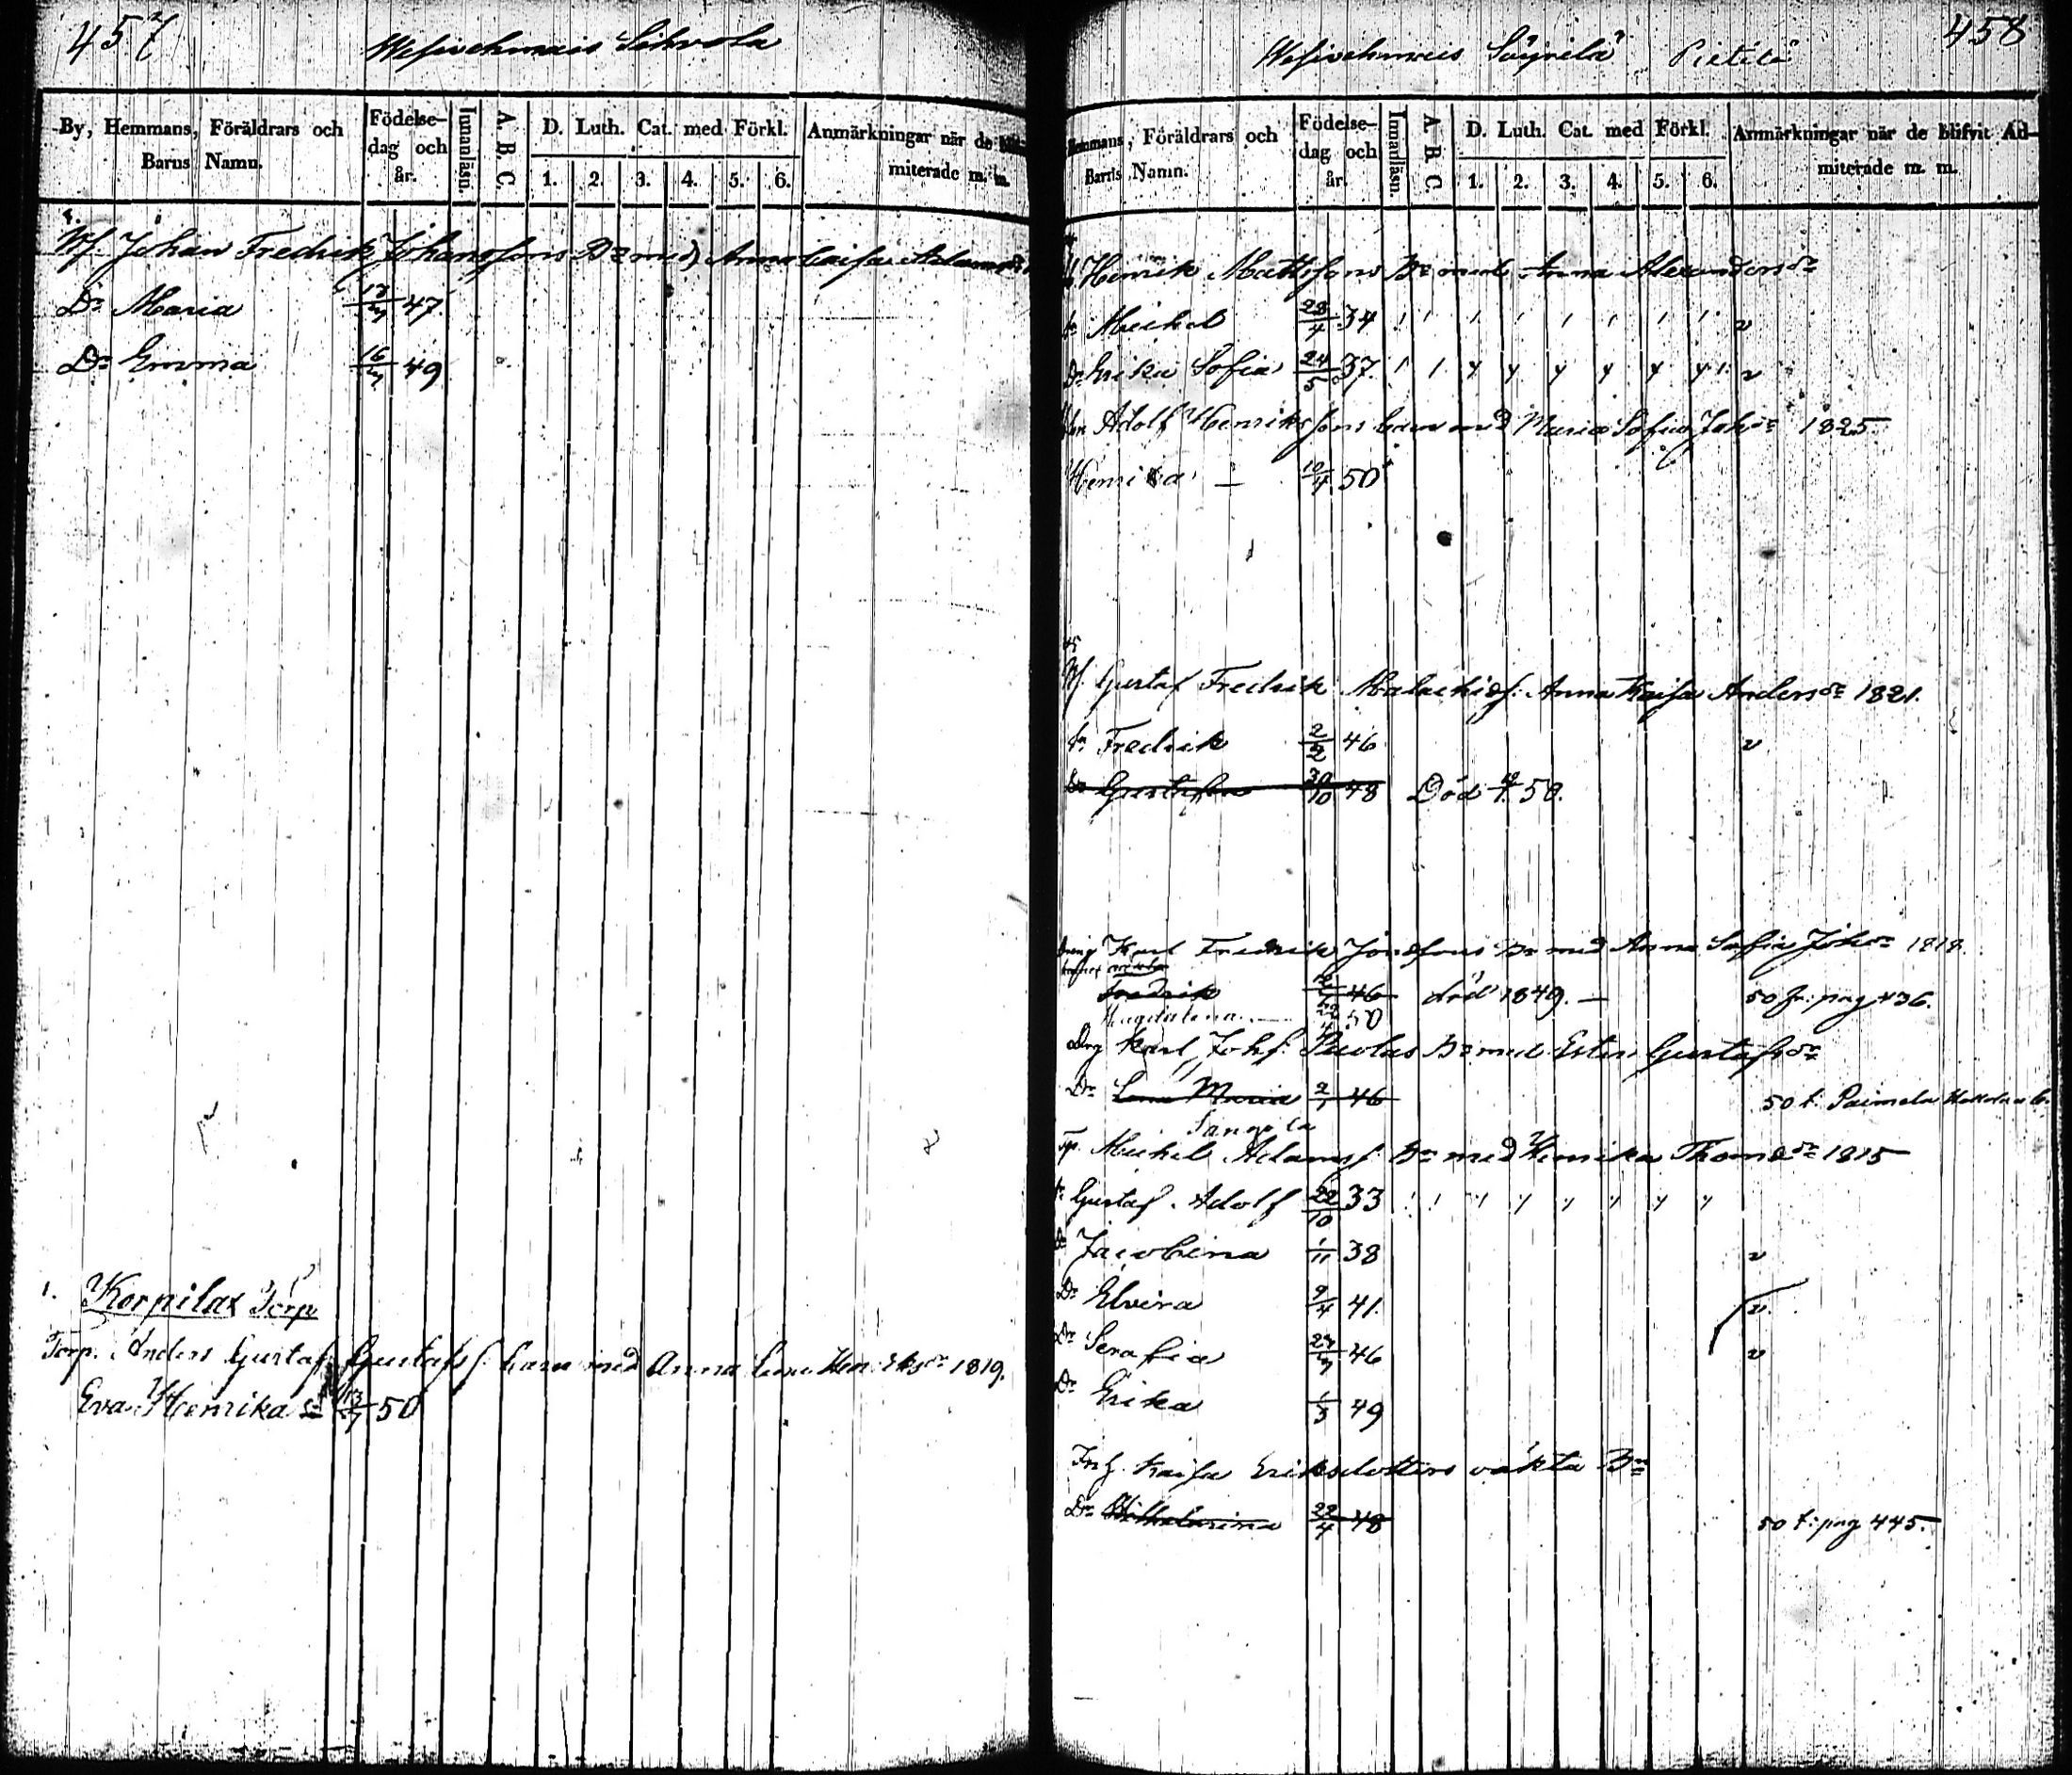 457 Wesivehmais Sihvola
By, Hemmans, Föräldrars och Barns Namn. Födelse-dag och år. Innanläsn. A. B. C. D. Luth. Cat. med Förkl. 1. 2. 3. 4. 5. 6. Anmärkningar när de miterade m. m.
Johan Fredrik Johanssons Bn med Anna Caisa Adamsdr
Dr Maria 47.
Dr Emma 49
1. Korpilax Torp
Torp. Anders Gustaf Gustafss. barn med Anna Lena Henriksdr 1819.
Eva Henrika 50
Wesivehmais Säyrilä Pietilä 458
Hemmans, Föräldrars och Barns Namn. Födelse-dag och år. Innanläsn. A. B. C D. Luth. Cat. med Förkl. 1. 2. 3. 4. 5. 6. Anmärkningar när de blifvit Ad-miterade m. m.
Henrik Mattssons Bn med Anna Alexandersdr
Michel 23/4 34
Dr Erika Sofia 24/5 37.
Adolf Henrikssons barn med Maria Sofia Johdr 1825.
Henrika 10/4 50
Gustaf Fredrik Malachiss. Anna Kaisa Andersdr 1821.
Fredrik 2/2 46
Gustafva 30/10 48 Död 50.
Karl Fredrik Bn med Anna Sofia Johdr 1818.
Fredrik 46 död 1849. 50 fr. pag 436.
Magdalena 50
Drg Karl Johs. Bn med Ester Gustafsdr
Dr Lena Maria 46 50 t. Paimela
Tp. Michel Adamss. Bn med Henrika Thomedr 1815
Gustaf Adolf 22/10 33
Jacobina 1/11 38
Dr Elvira 9/4 41.
Dr Serafia 46
Dr Erika 49
Kaisa Eriksdotters oäkta Bn
Dr Wilhelmina 22/4 48 50 t: pag 445.